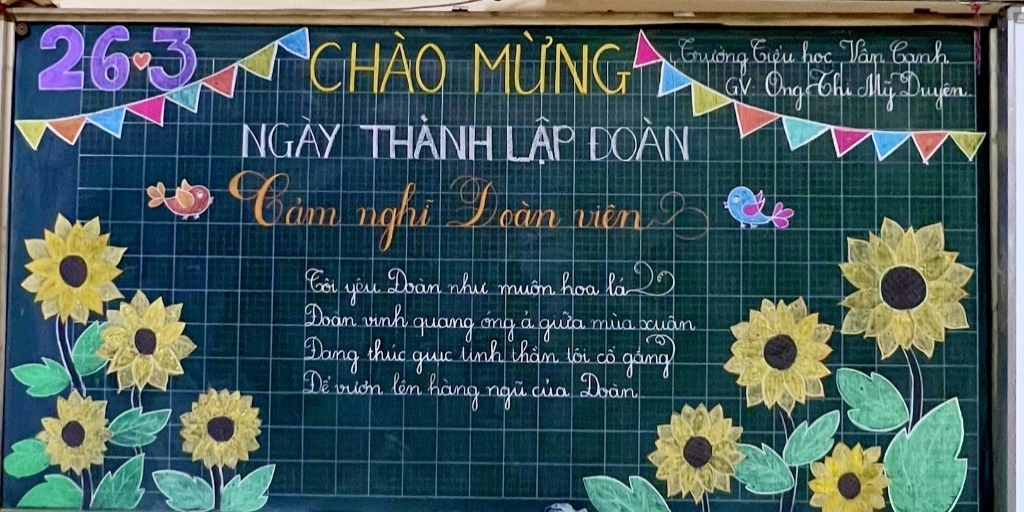 26.3
CHÀO MỪNG
Trường Tiểu học Vân Canh
GV: Ong Thị Mỹ Duyên
NGÀY THÀNH LẬP ĐOÀN
Cảm nghĩ Đoàn viên
Tôi yêu Đoàn như muôn hoa lá
Đoàn vinh quang óng ả giữa mùa xuân
Đang thúc giục tinh thần tôi cố gắng
Để vươn lên hàng ngũ của Đoàn